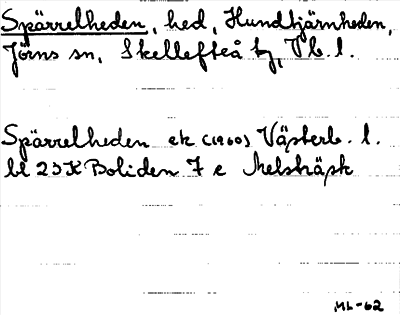 Spärrelheden, hed, Hundtjärnheden,
Jörns sn, Skellefteå tg, Vb. l.
Spärrelheden ek (1960) Västerb. l.
bl 23K Boliden 7 e Melsträsk
ML-62